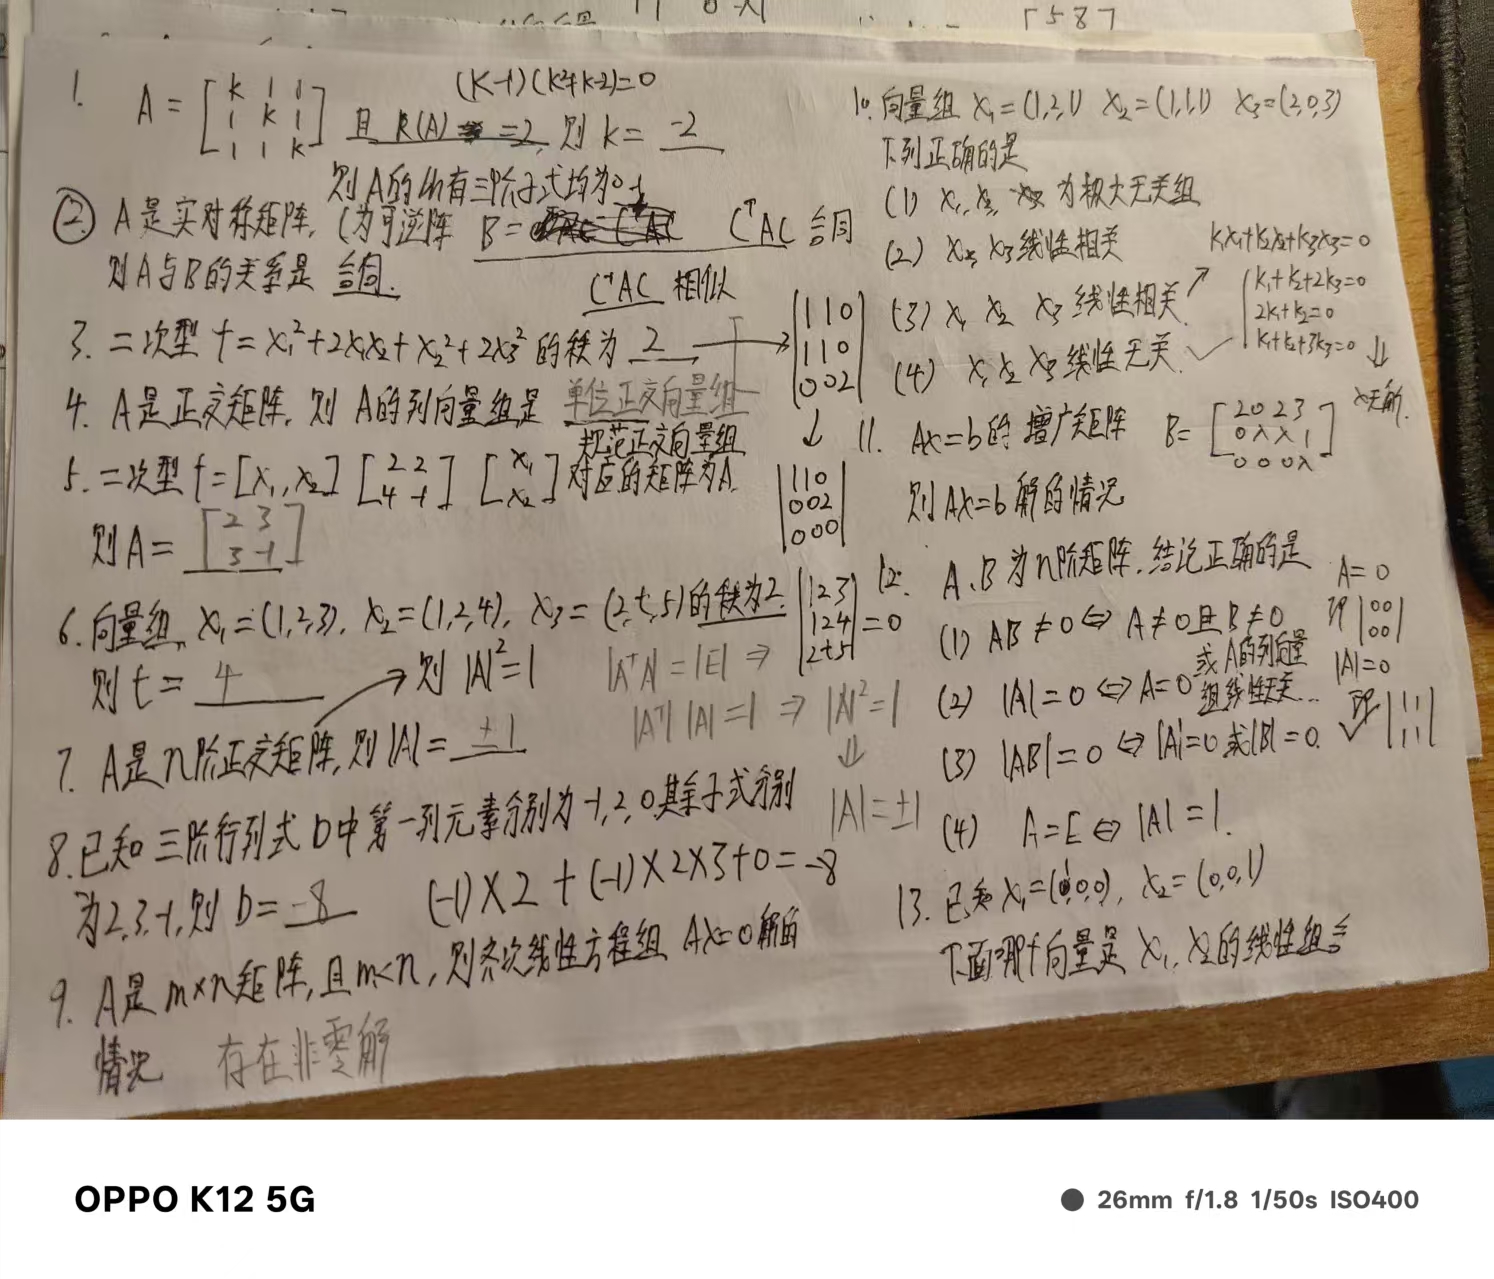 1. A = [k 1 1
1 k 1
1 1 k] 且 R(A) =2, 则 k = -2
(k-1)(k²+k-2)=0
则A的所有三阶子式均为0
② A是实对称矩阵, C为可逆阵 B = CᵀAC 合同
则A与B的关系是 合同.
C⁻¹AC 相似
3. 二次型 f = x₁²+2x₁x₂+x₂²+2x₃² 的秩为 2 → |110
110
002|
↓
|110
002
000|
4. A是正交矩阵, 则 A的列向量组是 单位正交向量组
规范正交向量组
5. 二次型 f = [x₁, x₂] [2 2
4 -1] [x₁
x₂] 对应的矩阵为A.
则A = [2 3
3 -1]
6. 向量组 x₁=(1,2,3), x₂=(1,2,4), x₃=(2,t,5)的秩为2. |1 2 3
1 2 4
2 t 5| = 0
则 t = 4
则 |A|²=1 |AᵀA| = |E| ⇒
|Aᵀ| |A| = 1 ⇒ |A|²=1
⇓
|A|=±1
7. A是n阶正交矩阵, 则|A| = ±1
8. 已知 三阶行列式 D中第一列元素分别为-1,2,0,其余子式分别
为2,3,-1,则 D= -8 (-1)×2+(-1)×2×3+0=-8
9. A是m×n矩阵, 且m<n, 则齐次线性方程组 Ax=0解的
情况 存在非零解
10. 向量组 x₁=(1,2,1) x₂=(1,1,1) x₃=(2,0,3)
下列正确的是
(1) x₁, x₂ 为极大无关组
(2) x₂ x₃线性相关
(3) x₁ x₂ x₃ 线性相关.
(4) x₁ x₂ x₃线性无关. ✓
k₁x₁+k₂x₂+k₃x₃=0
k₁+k₂+2k₃=0
2k₁+k₂=0
k₁+k₂+3k₃=0 ⇓
11. Ax=b的 增广矩阵 B= [2 0 2 3
0 λ λ 1
0 0 0 λ]
则 Ax=b 解的情况
12. A、B为n阶矩阵, 结论正确的是
(1) AB≠0 ⇔ A≠0且B≠0
(2) |A|=0 ⇔ A=0 或 A的列向量
组线性无关...
(3) |AB|=0 ⇔ |A|=0或|B|=0. ✓
(4) A=E ⇔ |A|=1.
A=0
即 |00
00|
|A|=0
即 |1 1
1 1|
13. 已知 x₁=(1,0,0), x₂=(0,0,1)
下面哪个向量是 x₁, x₂的线性组合
OPPO K12 5G
26mm f/1.8 1/50s ISO400